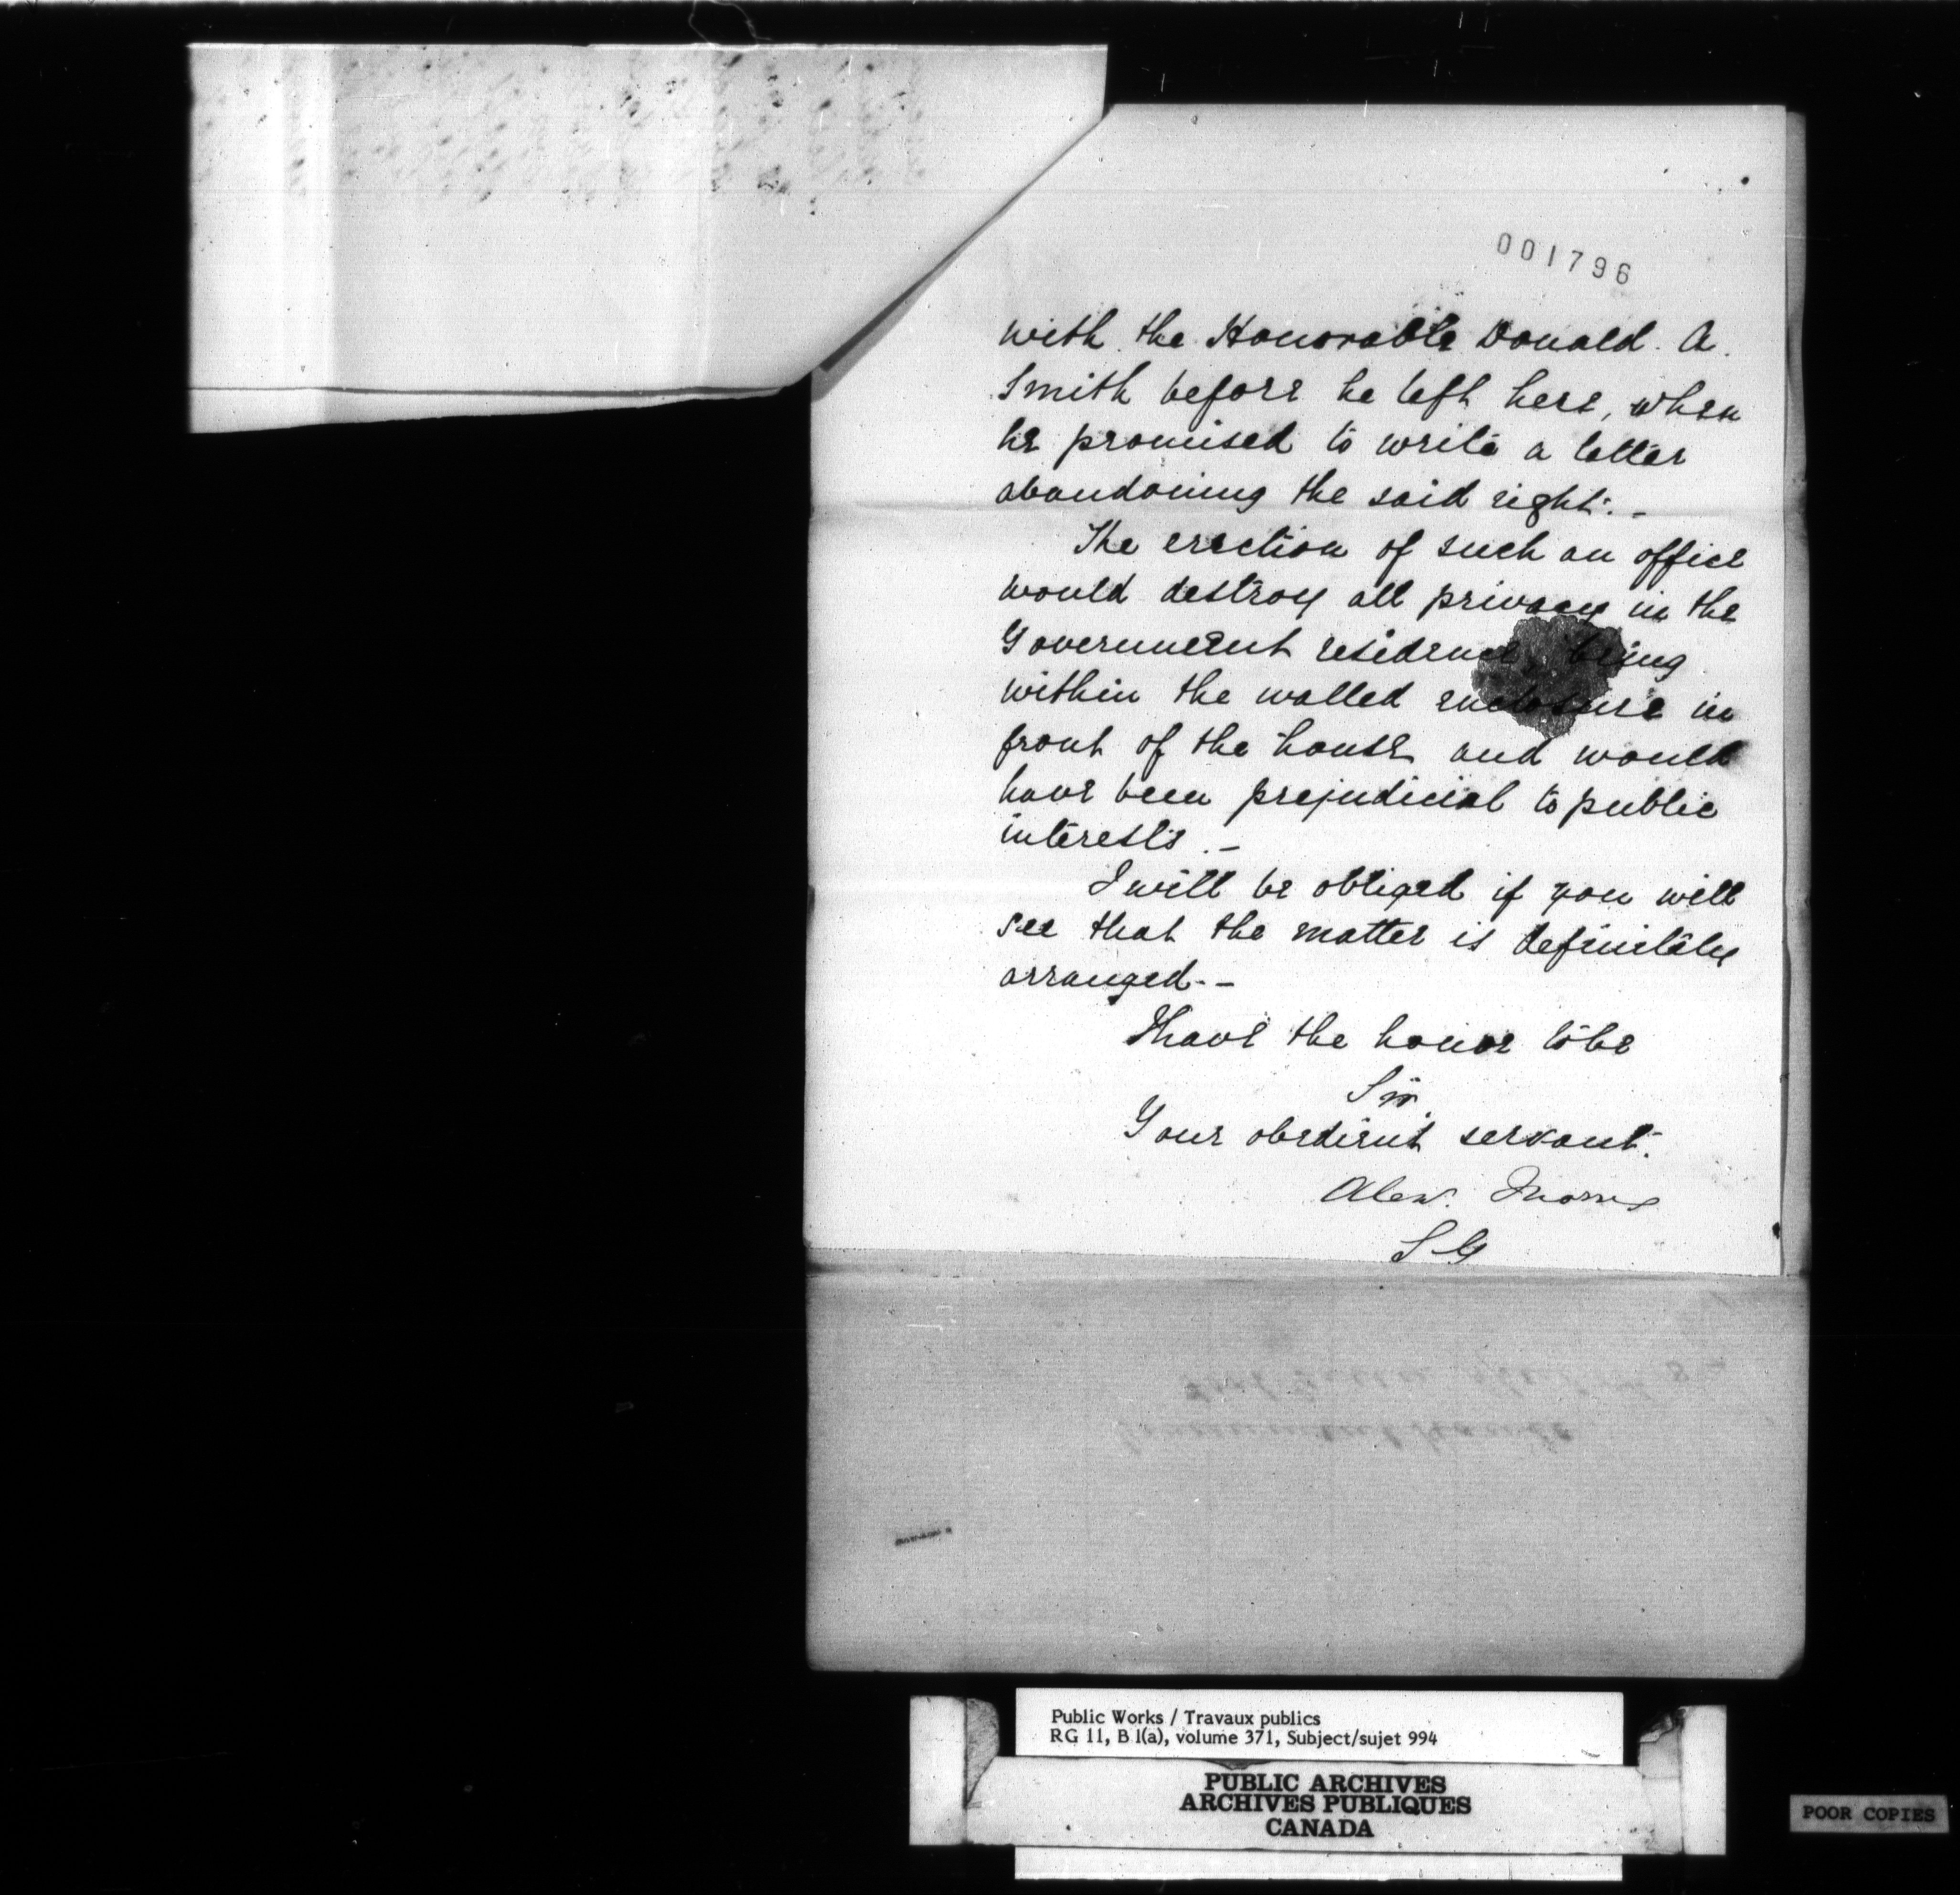 001796
with the Honorable Donald. A.
Smith before he left here, when
he promised to write a letter
abandoning the said right. -
The erection of such an office
would destroy all privacy in the
Government residence, being
within the walled enclosure in
front of the house and would
have been prejudicial to public
interests. -
I will be obliged if you will
see that the matter is definitely
arranged. -
I have the honor to be
Sir
Your obedient servant.
Alex. Morris
L G
Public Works / Travaux publics
RG 11, B 1(a), volume 371, Subject/sujet 994
PUBLIC ARCHIVES
ARCHIVES PUBLIQUES
CANADA
POOR COPIES